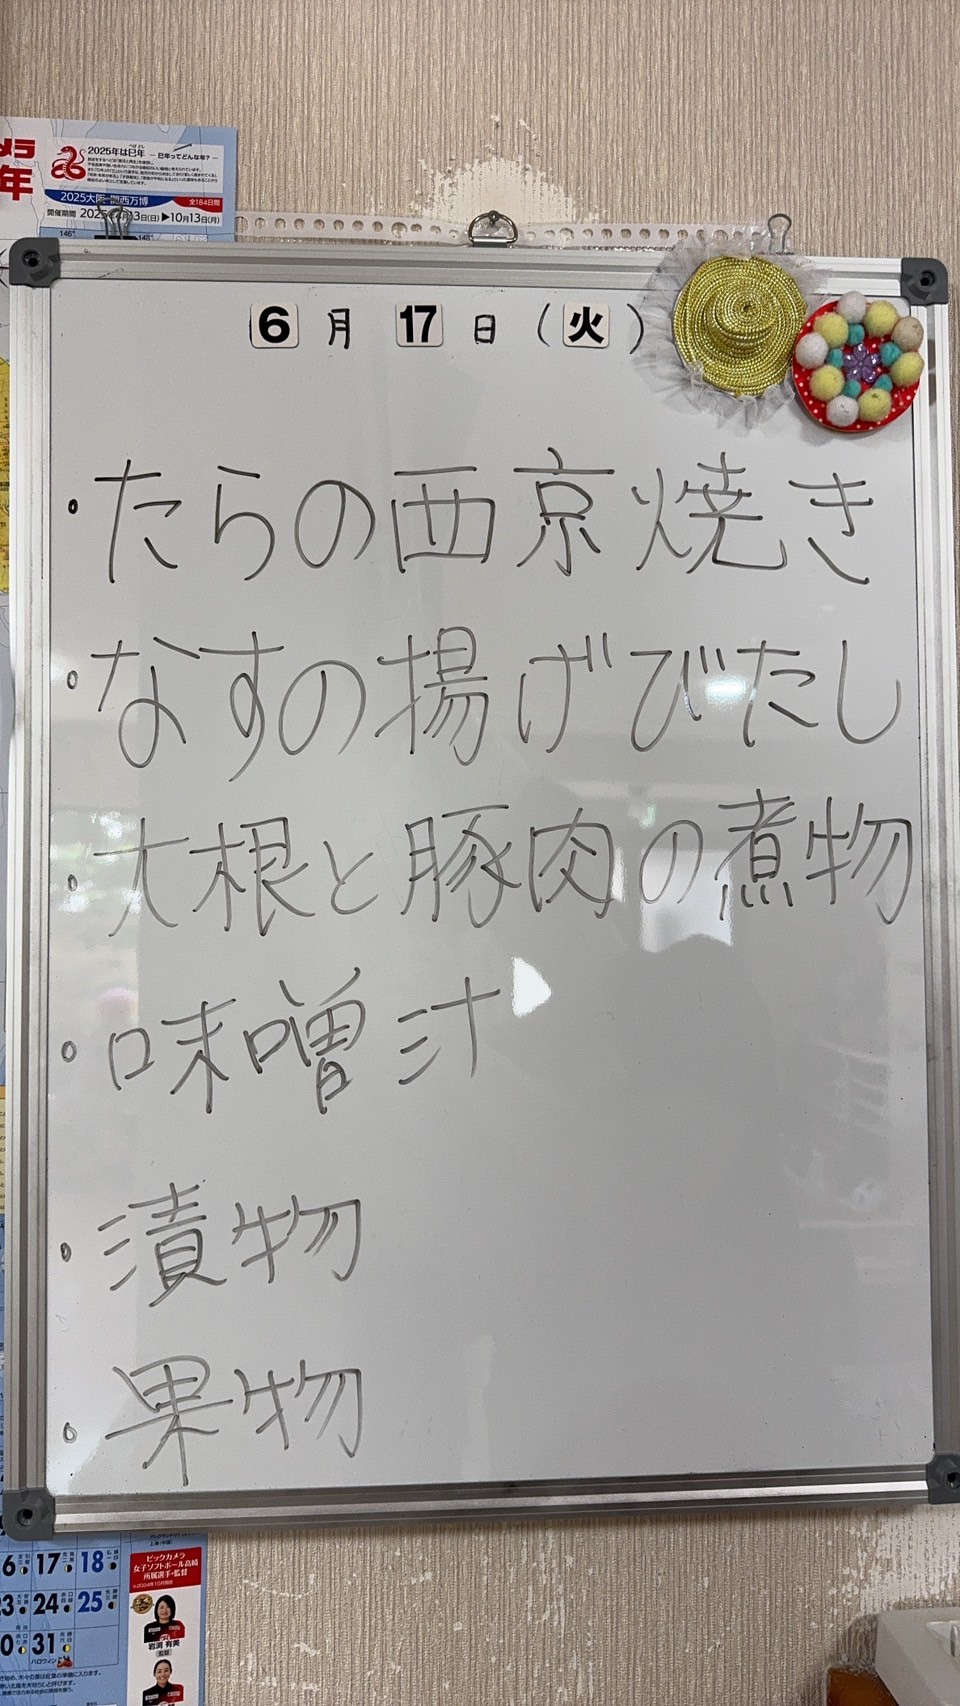 2025年は巳年 ― 巳年ってどんな年? ―
年
2025大阪・関西万博 全184日間
開催期間 2025年4月13日(日)▶10月13日(月)
146° 148°
6月17日(火)
・たらの西京焼き
・なすの揚げびたし
・大根と豚肉の煮物
・味噌汁
・漬物
・果物
17 18
24 25
31
ハロウィン
ビックカメラ
女子ソフトボール高崎
所属選手・監督
※2024年10月現在
岩渕 有美
監督